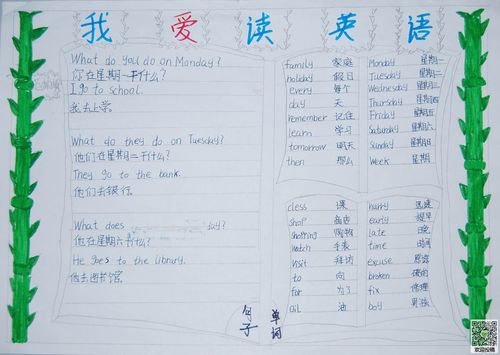 我爱读英语
What do you do on Monday?
你在星期一干什么?
I go to school.
我去上学。
What do they do on Tuesday?
他们在星期二干什么?
They go to the bank.
他们去银行。
What does day?
他在星期六干什么?
He goes to the library.
他去图书馆。
family 家庭
holiday 假日
every 每个
day 天
remember 记住
learn 学习
tomorrow 明天
then 那么
Monday 星期一
Tuesday 星期二
Wednesday 星期三
Thursday 星期四
Friday 星期五
Saturday 星期六
Sunday 星期日
Week 星期
cless 课
shop 商店
shopping 购物
watch 手表
visit 拜访
to 向
for 为了
oil 油
hurry 迅速
early 提早
late 晚
time 时间
excuse 原谅
broken 坏的
fix 修理
boy 男孩
句子
单词
欢迎投稿